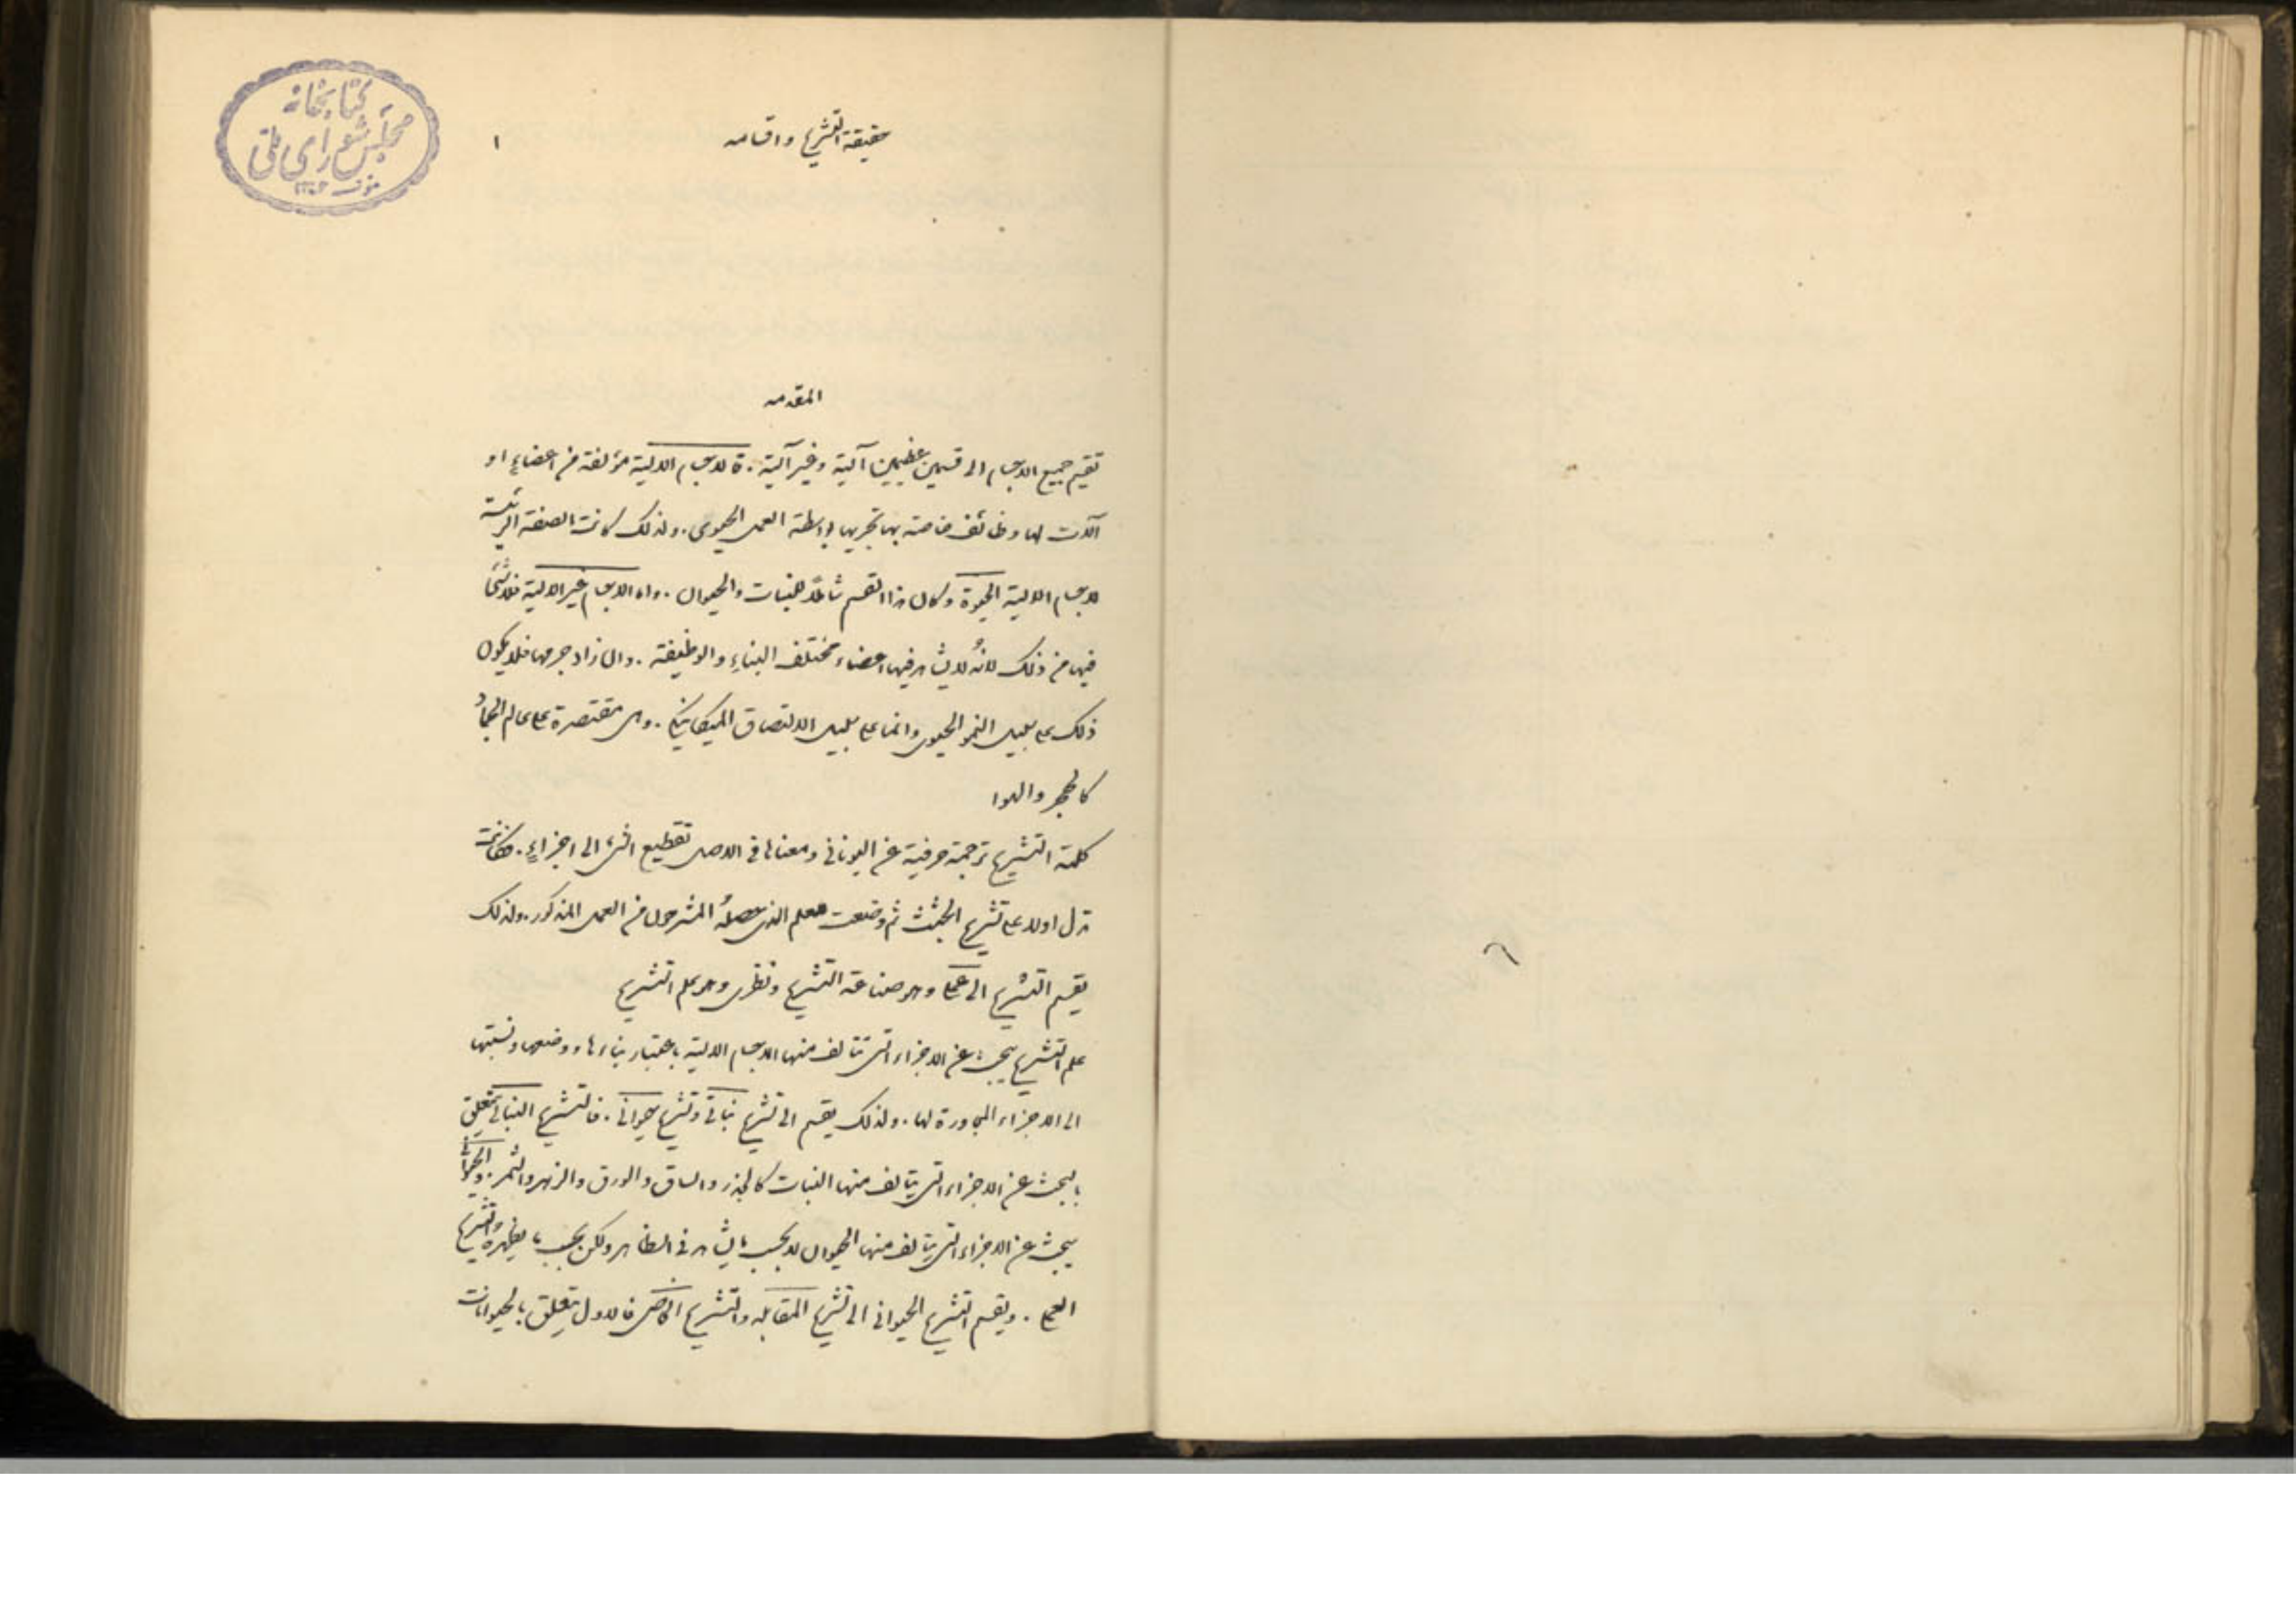 كتابخانه
مجلس شورای ملی
حقيقة التشريح واقسامه
١
المقدمه
تقسم جميع الاجسام الى قسمين عظيمين آلية وغير آلية. فالاجسام الالية مؤلفة من اعضاءٍ او
آلات لها وظائف خاصة بها تجريها بواسطة العمل الحيوى. ولذلك كانت الصفة الرئيسة
للاجسام الالية الحيوة وكان هذا القسم شاملًا للنبات والحيوان. واما الاجسام غير الالية فلا شئَ
فيها من ذلك لانهُ لا يشاهد فيها اعضاء مختلفة البناءِ والوظيفة. وان زاد جرمها فلا يكون
ذلك على سبيل النمو الحيوى وانما على سبيل الالتصاق الميكانيكى. وهى مقتصرة على عالم الجماد
كالحجر والهوا
كلمة التشريح ترجمة حرفية عن اليونانى ومعناها فى الاصل تقطيع الشئ الى اجزاءٍ. فكانت
تدل اولا على تشريح الجثث ثم وضعت للعلم الذى حصلهُ المشرحون من العمل المذكور. ولذلك
يقسم التشريح الى عملى وهو صناعة التشريح ونظرى وهو علم التشريح
علم التشريح يبحث عن الاجزاء التى تتألف منها الاجسام الالية باعتبار بناءها ووضعها ونسبتها
الى الاجزاء المجاورة لها. ولذلك يقسم الى تشريح نباتى وتشريح حيوانى. فالتشريح النباتى يتعلق
بالبحث عن الاجزاء التى يتألف منها النبات كالجذر والساق والورق والزهر والثمر. والحيوانى
يبحث عن الاجزاء التى يتألف منها الحيوان لا بحسب ما يشاهد فى الظاهر ولكن بحسب ما يظهرهُ التشريح
العملى. ويقسم التشريح الحيوانى الى تشريح المقابله والتشريح الخاص فالاول يتعلق بالحيوانات